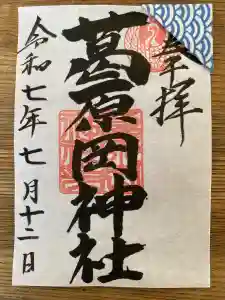 奉拝
葛原岡神社
令和七年七月十二日